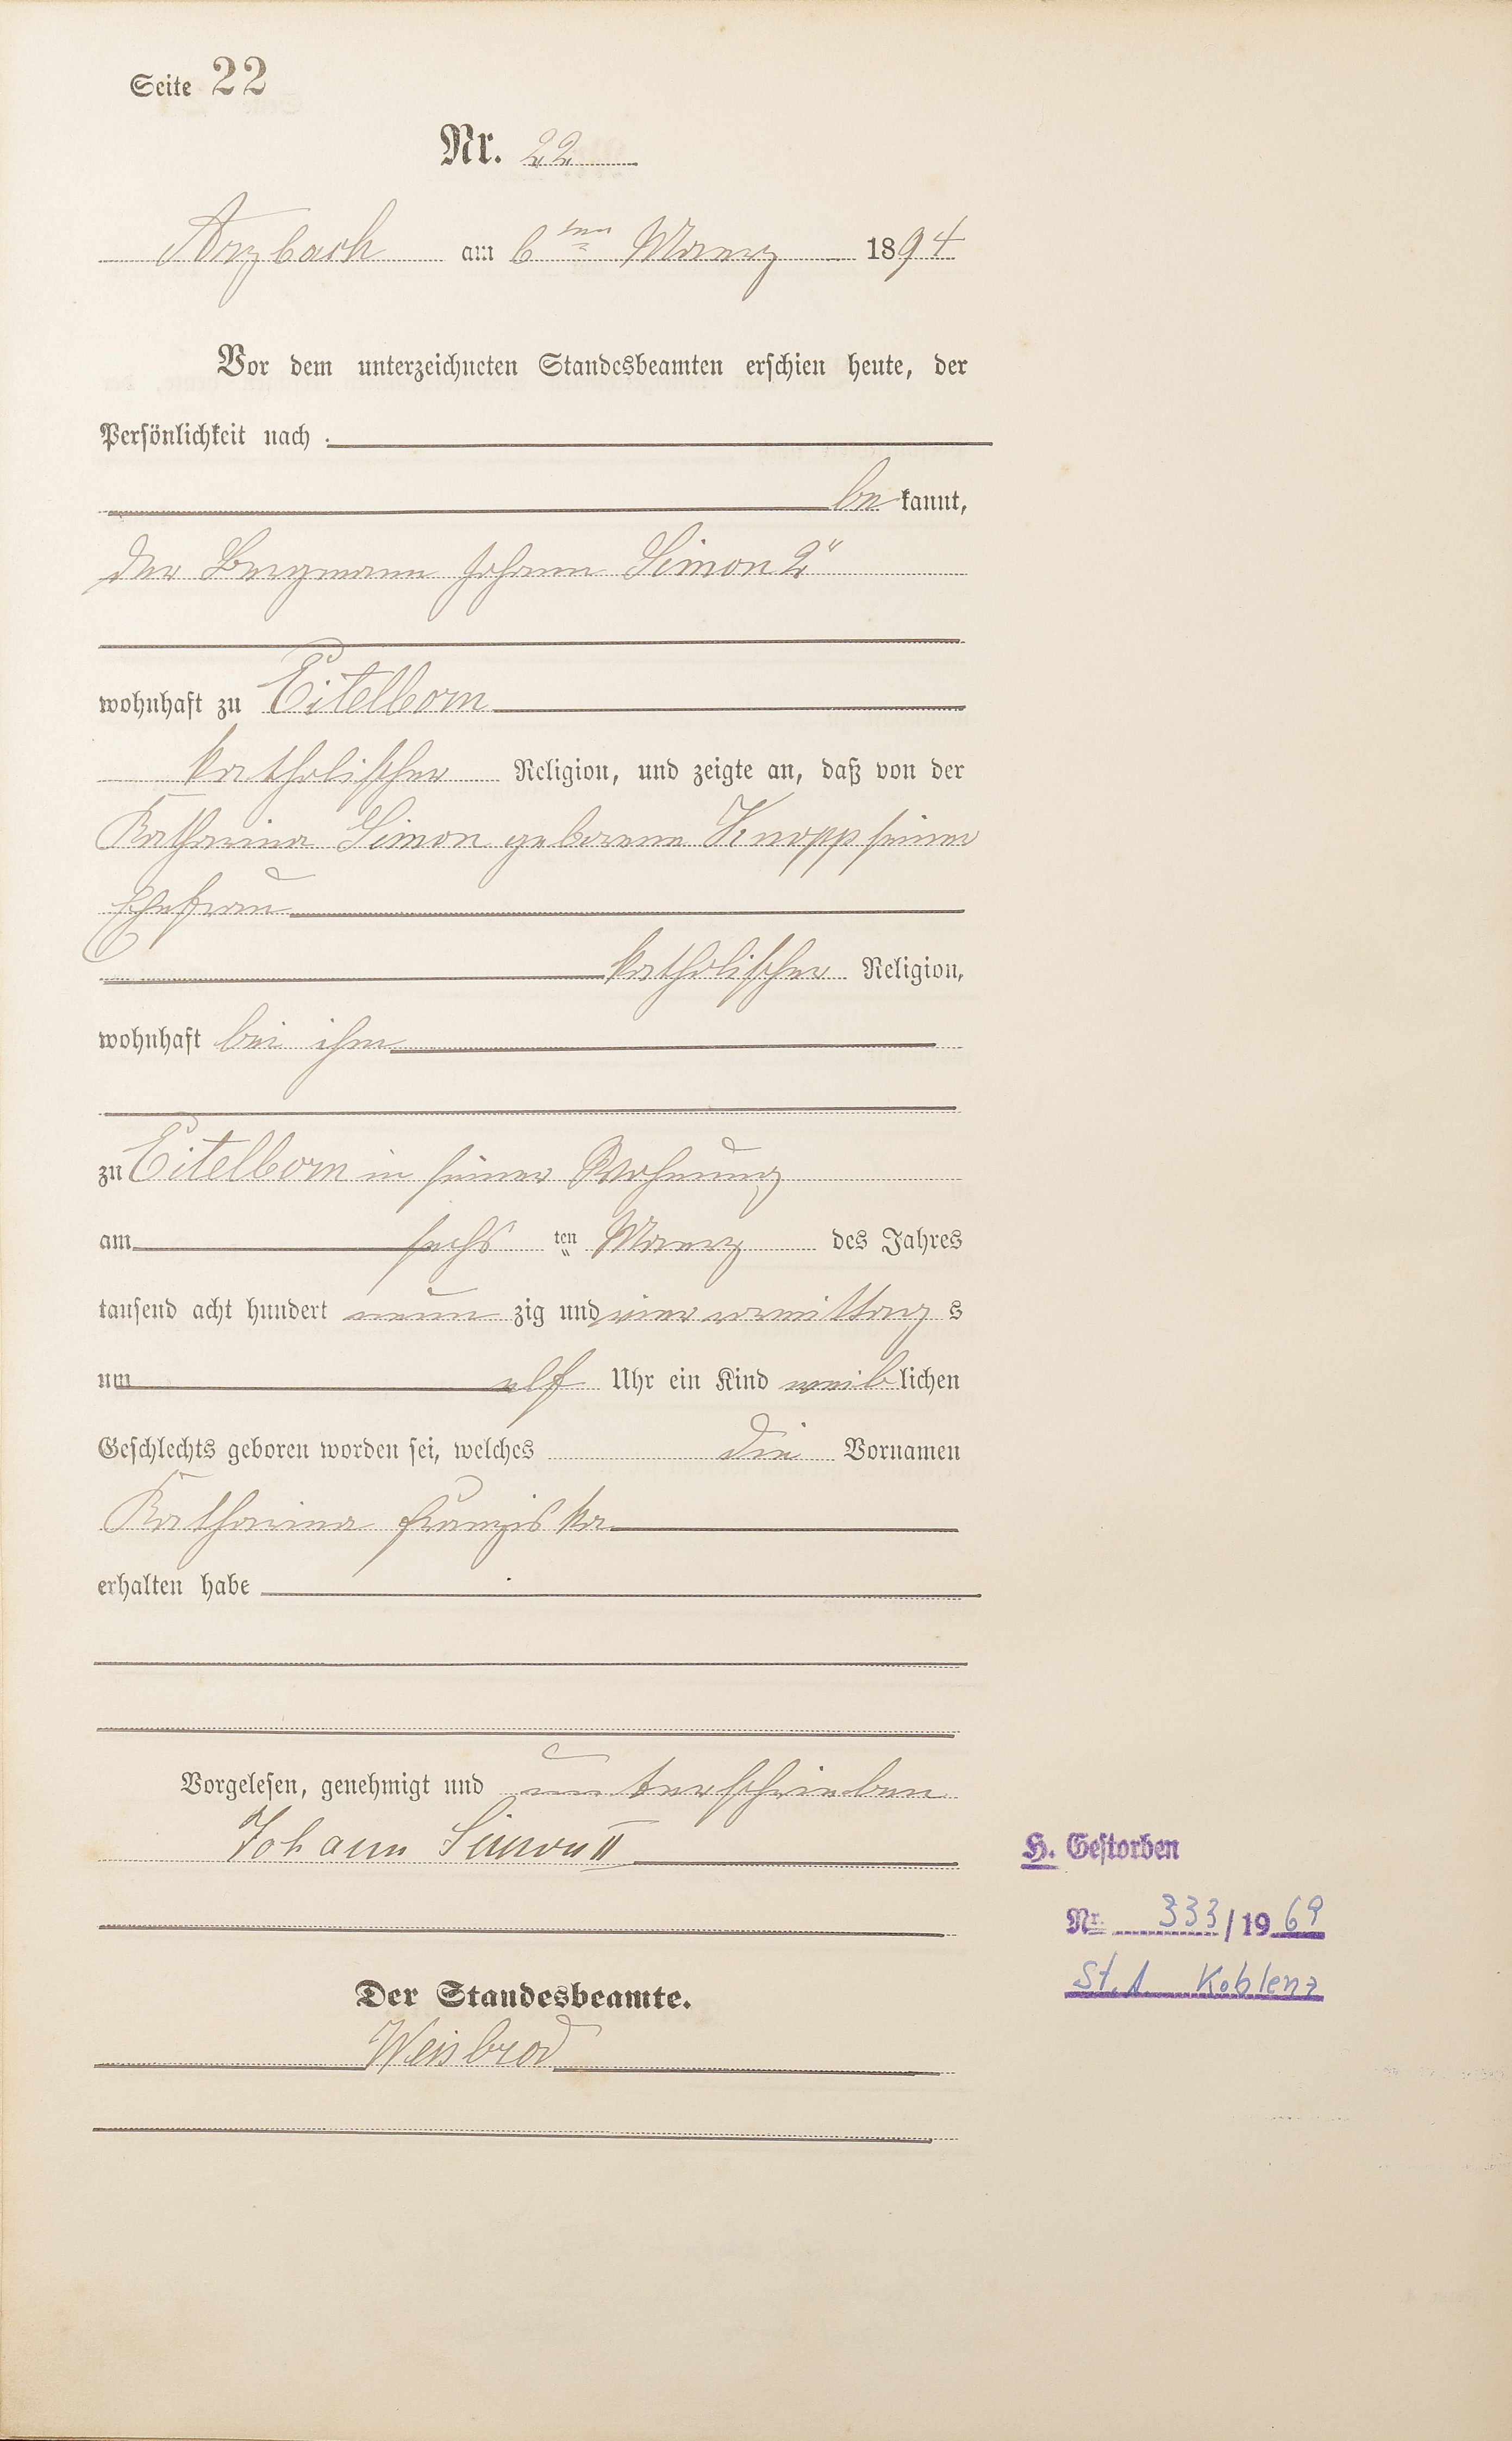 Seite 22
Nr. 22
Arzbach am 6ten Maerz 1894
Vor dem unterzeichneten Standesbeamten erschien heute, der
Persönlichkeit nach
bekannt,
der Bergmann Johann Simon 2"
wohnhaft zu Eitelborn
katholischer Religion, und zeigte an, daß von der
Katharina Simon geborene Knopp seiner
Ehefrau
katholischer Religion,
wohnhaft bei ihm
zu Eitelborn in seiner Wohnung
am sechs ten Maerz des Jahres
tausend acht hundert neun zig und vier vormittag s
um elf Uhr ein Kind weiblichen
Geschlechts geboren worden sei, welches die Vornamen
Katharina Franziska
erhalten habe
Vorgelesen, genehmigt und unterschrieben
Johann Simon II
H. Gestorben
Nr. 333/1969
St. A. Koblenz
Der Standesbeamte.
Weisbrod